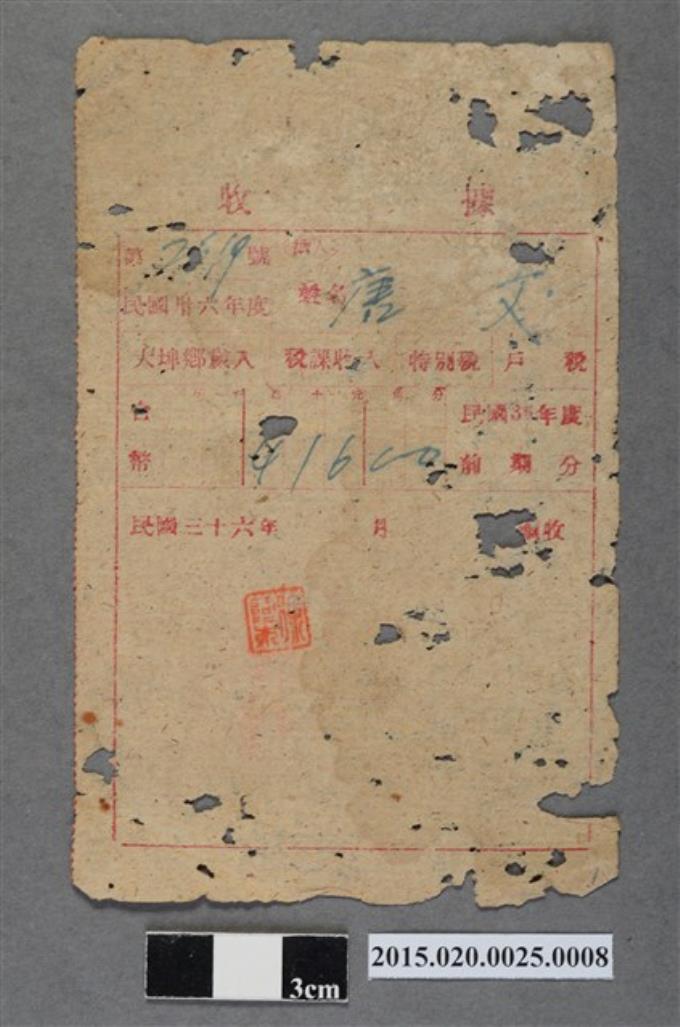 收 據
第 號
民國卅六年度 姓名 唐
大埤鄉歲入 稅課收入 特別稅 戶 稅
台 民國35年度
幣 41600 前 期 分
民國三十六年 月 收
2015.020.0025.0008
3cm